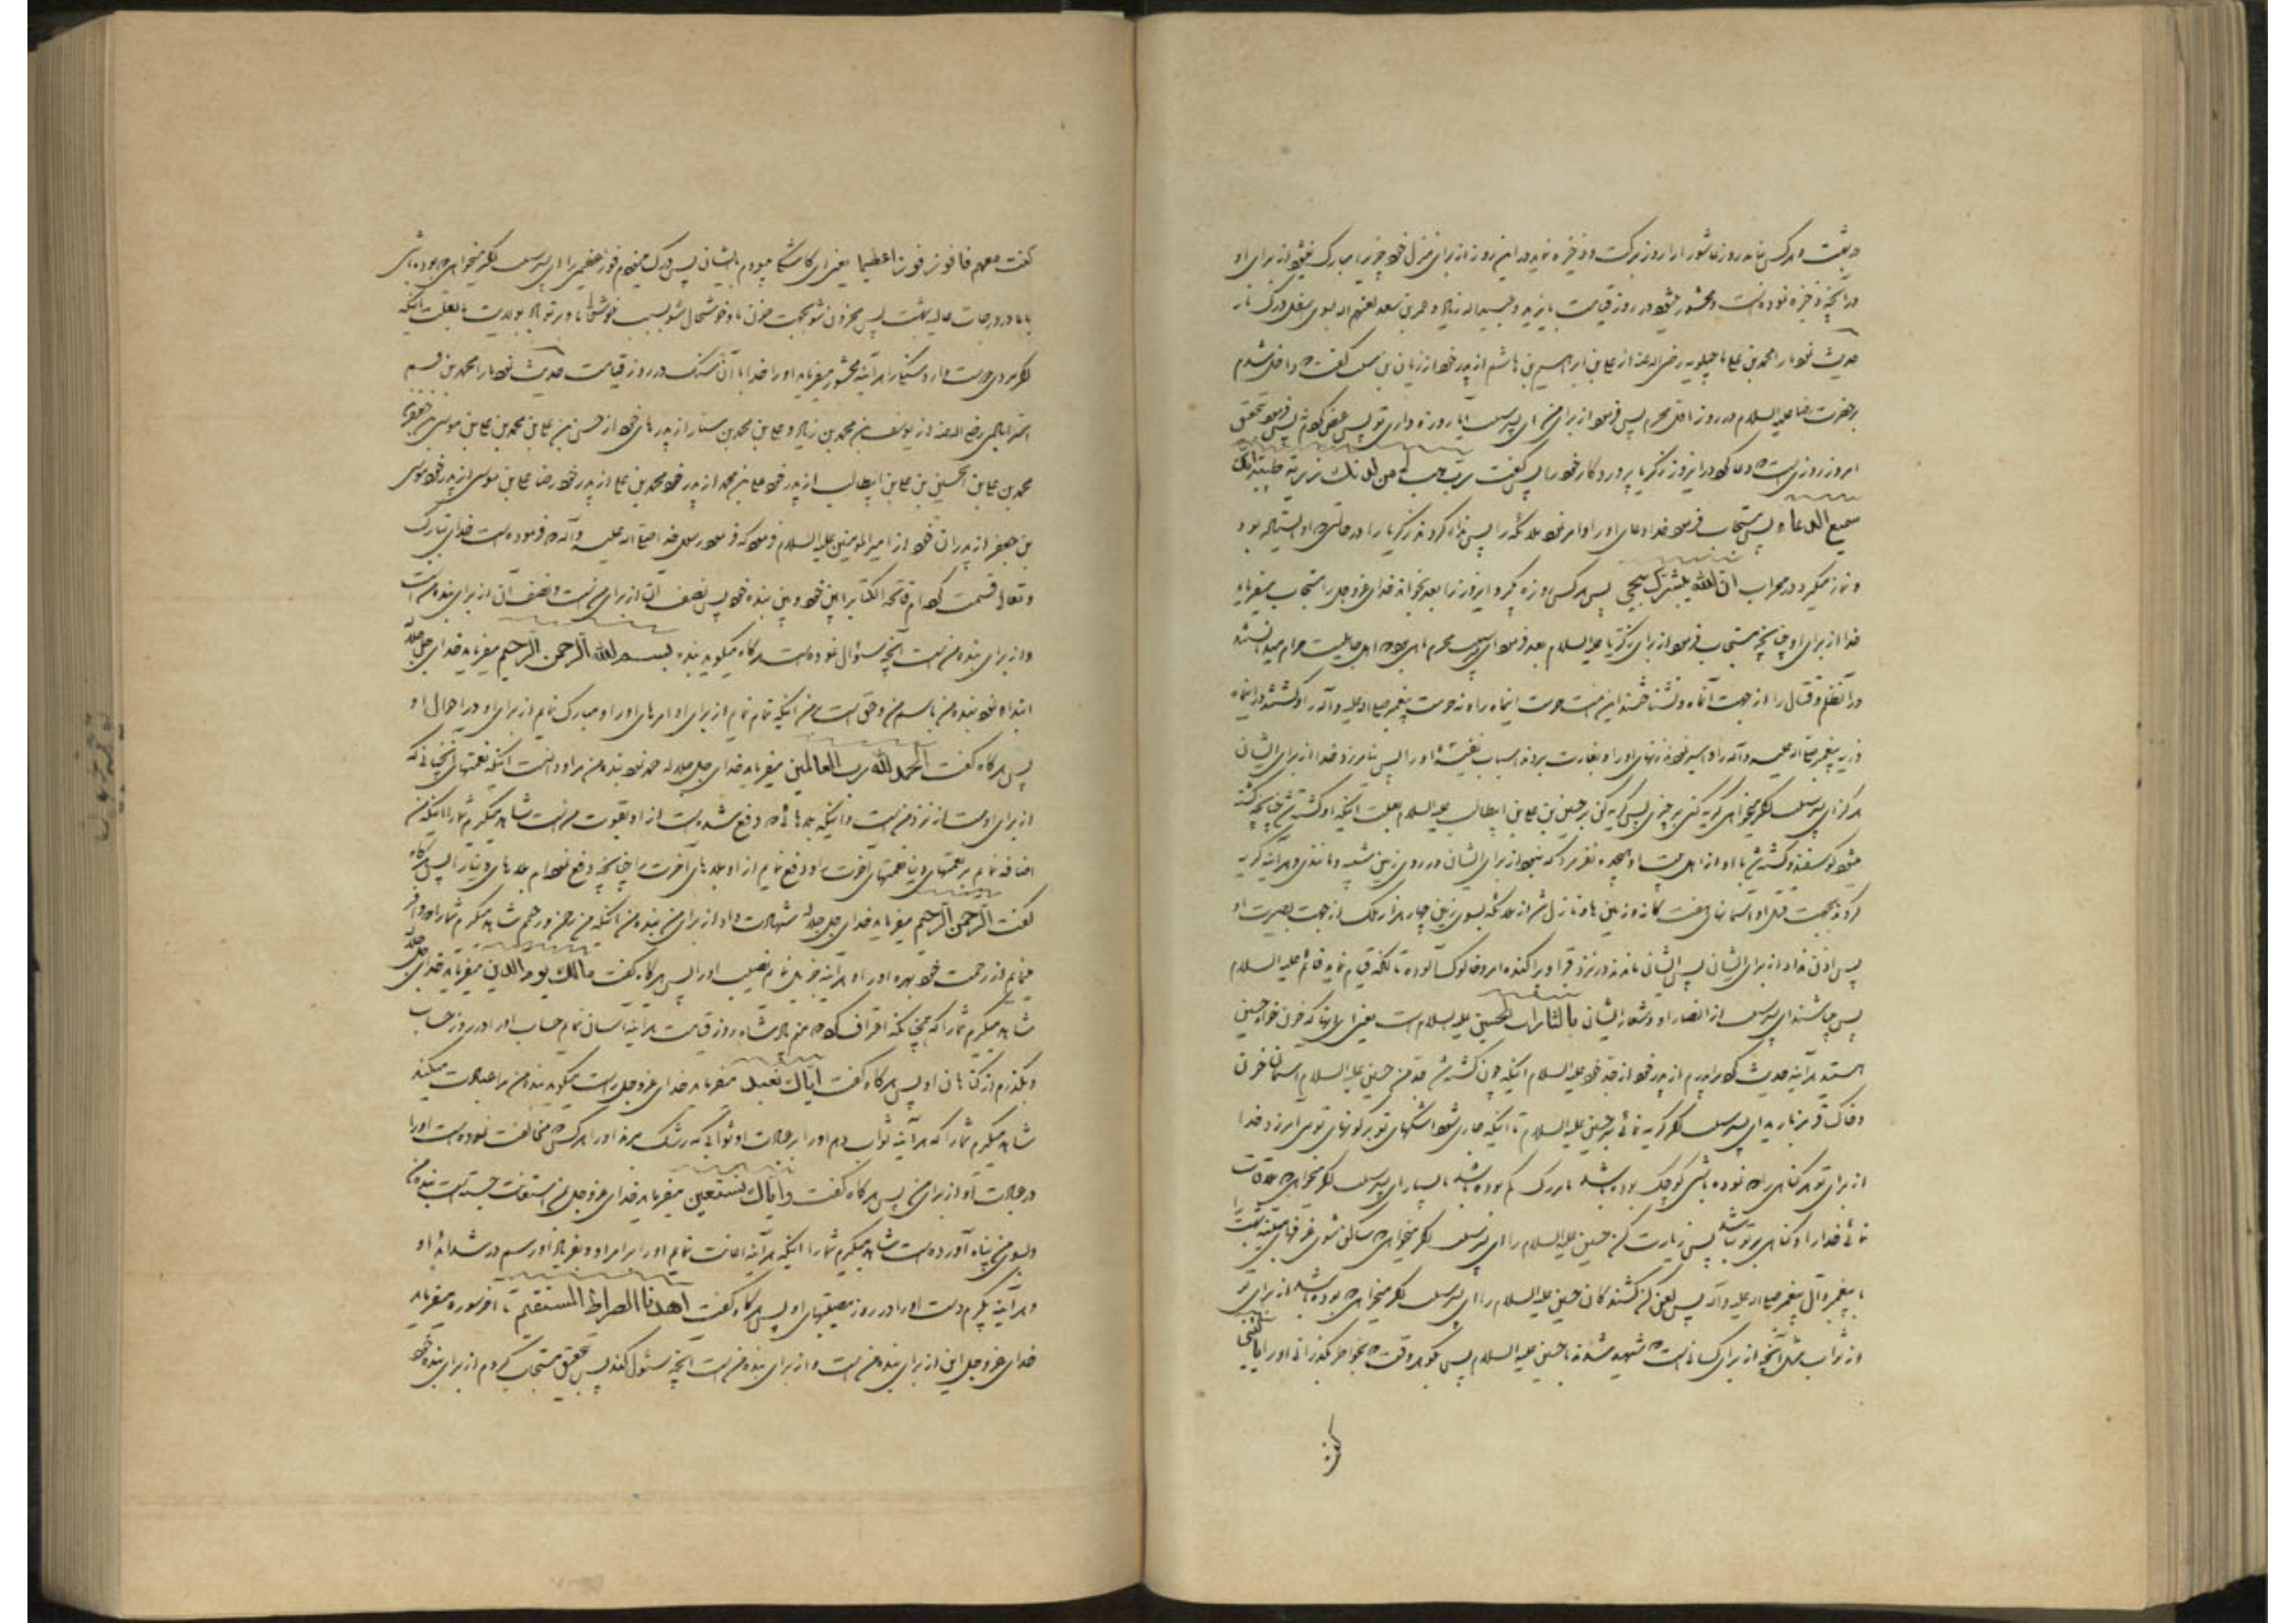 در بهشت و هر کس نامد روز عاشورا را روز برکت و ذخیره نماید در این روز از برای منزل خود چیزیرا مبارک نمیشود از برای او
در آنچه ذخیره نموده است و محشور میشود در روز قیامت با یزید و عبیداله زیاد و عمر بن سعد لعنهم اله بسوی سفل درک نار
حدیث نمود ما را محمد بن علی ماجیلویه رضی اله عنه از علی بن ابراهیم بن هاشم از پدر خود از ریان بن شبیب گفت که داخل شدم
بر حضرت رضا علیه السلام در روز اول محرم پس فرمود از برای من ای پسر شبیب آیا روزه داری تو پس عرض کردم نه پس فرمود تحقیق
امروز روزی است که دعا کرد در اینروز زکریا پروردگار خود را پس گفت رب هب لی من لدنك ذریة طیبة انك
سمیع الدعاء پس مستجاب فرمود خدا دعای او را و امر نمود ملائکه را پس نداء کردند زکریا را در حالتی که او ایستاده بود
و نماز میکرد در محراب ان الله یبشرك بیحیی پس هر کس روزه گیرد اینروز را بعد بخواند خدای عز و جل را مستجاب میفرماید
خدا از برای او چنانچه مستجاب فرمود از برای زکریا علیه السلام بعد فرمود ای پسر شبیب محرم ماهی بود که اهل جاهلیت حرام میدانستند
در آن ظلم و قتال را از جهت آنماه و نشناختند این امت حرمت اینماه را و نه حرمت پیغمبر صلی اله علیه و آله را و کشتند در اینماه
ذریه پیغمبر صلی اله علیه و آله را و اسیر نمودند زنهای او را و بغارت بردند اسباب نفیسه او را پس نیامرزد خدا از برای ایشان
هرگز ای پسر شبیب اگر میخواهی گریه کنی بر چیزی پس گریه کن بر حسین بن علی بن ابیطالب علیه السلام بعلت اینکه او کشته شد چنانچه کشته
میشود گوسفند و کشته شد با او از اهل بیت او هیجده نفر مرد که نبود از برای ایشان در روی زمین شبیه و مانندی و هر آینه گریه
کردند بجهت قتل او آسمانهای هفت گانه و زمین ها و نازل شد از ملائکه بسوی زمین چهار هزار ملک از جهت نصرت او
پس اذن نداد از برای ایشان پس ایشان ماندند در نزد قبر او پراکنده مو و خاک آلوده تا آنکه قیام نماید قائم علیه السلام
پس میباشند ای پسر شبیب از انصار او و شعار ایشان یا لثارات الحسین علیه السلام است یعنی ای آنها که خون خواه حسین
هستید هر آینه حدیث کرد مرا پدرم از پدر خود از جد خود علیه السلام اینکه چون کشته شد جد من حسین علیه السلام آسمان خون
و خاک قرمز بارید ای پسر شبیب اگر گریه نمائی بر حسین علیه السلام تا اینکه جاری شود اشکهای تو بر گونهای تو می آمرزد خدا
از برای تو هر گناهی را که نموده باشی کوچک بوده باشد یا بزرگ کم بوده باشد یا بسیار ای پسر شبیب اگر میخواهی که ملاقات
نمائی خدا را و گناهی بر تو نباشد پس زیارت کن حسین علیه السلام را ای پسر شبیب اگر میخواهی که ساکن شوی غرفهای مبنیه بهشت را
با پیغمبر و آل پیغمبر صلی اله علیه و آله پس لعن کن کشندگان حسین علیه السلام را ای پسر شبیب اگر میخواهی که بوده باشد از برای تو
از ثواب مثل آنچه از برای کسانی است که شهید شدند با حسین علیه السلام پس بگو هر وقت که بخواطر بگذرانی او را یا لیتنی
کنت
کنت معهم فافوز فوزا عظیما یعنی ای کاش میبودم با ایشان پس درک مینمودم فوز عظیمی را ای پسر شبیب اگر میخواهی که بوده باشی
با ما در درجات عالیه بهشت پس محزون شو بجهت حزن ما و خوشحال شو بسبب خوشحالی ما و بر تو باد بولایت ما بعلت اینکه
اگر مردی دوست دارد سنگیرا هر آینه محشور میفرماید او را خدا با آن سنگ در روز قیامت حدیث نمود ما را محمد بن قسم
استرابادی رضی اله عنه از یوسف بن محمد بن زیاد و علی بن محمد بن سیار از پدرهای خود از حسن بن علی بن محمد بن علی بن موسی بن جعفر بن
محمد بن علی بن الحسین بن علی بن ابیطالب از پدر خود علی بن محمد از پدر خود محمد بن علی از پدر خود رضا علی بن موسی از پدر خود موسی
بن جعفر از پدران خود از امیرالمومنین علیه السلام فرمود که فرمود رسول خدا صلی اله علیه و آله که فرموده است خدای تبارک
و تعالی قسمت کرده ام فاتحة الکتاب را بین خود و بین بنده خود پس نصف آن از برای من است و نصف آن از برای بنده من است
و از برای بنده من است آنچه سئوال نموده است هرگاه میگوید بنده بسم الله الرحمن الرحیم میفرماید خدای جل جلاله
ابتداء نمود بنده من باسم من و حق است بر من اینکه تمام نمایم از برای او امرهای او را و مبارک نمایم از برای او در احوال او
پس هرگاه گفت الحمد لله رب العالمین میفرماید خدای جل جلاله حمد نمود بنده من مرا و دانست اینکه نعمتهای آنچنانی که
از برای اوست از نزد من است و اینکه بلاهائی که دفع شده است از او بقوت من است شاهد میگیرم شما را اینکه من
اضافه نمایم بر نعمتهای دنیا نعمتهای آخرت را و دفع نمایم از او بلاهای آخرت را چنانچه دفع نمودم بلاهای دنیا را پس هرگاه
گفت الرحمن الرحیم میفرماید خدای جل جلاله شهادت داد از برای من بنده من اینکه من رحمن و رحیم شاهد میگیرم شما را که وافر
مینمایم از رحمت خود بهره او را و هر آینه جزیل نمایم نصیب او را پس هرگاه گفت مالك یوم الدین میفرماید خدای جل جلاله
شاهد میگیرم شما را که همچنانکه اعتراف کرد که منم پادشاه روز قیامت هر آینه آسان نمایم حساب او را در روز حساب
و بگذرم از گناهان او پس هرگاه گفت ایاك نعبد میفرماید خدای عز و جل راست میگوید بنده من مرا عبادت میکند
شاهد میگیرم شما را که هر آینه ثواب دهم او را بر عبادت او ثوابی که رشک برند او را هر کس که مخالفت نموده است او را
در عبادت او از برای من پس هرگاه گفت وایاك نستعین میفرماید خدای عز و جل بمن استعانت جسته است بنده من
و بسوی من پناه آورده است شاهد میگیرم شما را اینکه هر آینه اعانت نمایم او را بر امر او و بفریاد او رسم در شداید او
و هر آینه بگیرم دست او را در روز مصیبتهای او پس هرگاه گفت اهدنا الصراط المستقیم تا آخر سوره میفرماید
خدای عز و جل این از برای بنده من است و از برای بنده من است آنچه سئوال کند پس بتحقیق مستجاب کردم از برای بنده خود